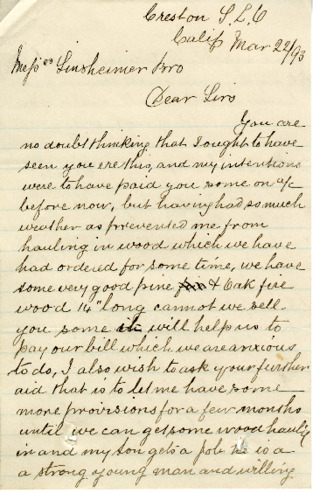 Creston S.L.O
Calif Mar 22/93
Mess rs Sinsheimer Bro
Dear Sirs
You are
no doubt thinking that I ought to have
seen you ere this, and my intentions
were to have paid you some on a/c
before now, but having had so much
weather as prevented me from
hauling in wood which we have
had ordered for some time, we have
some very good pine & Oak fire
wood 14" long cannot we sell
you some it will help us to
pay our bill which we are anxious
to do, I also wish to ask your further
aid that is to let me have some
more provisions for a few months
until we can get some wood hauling
in and my son gets a job he is a
a strong young man and willing